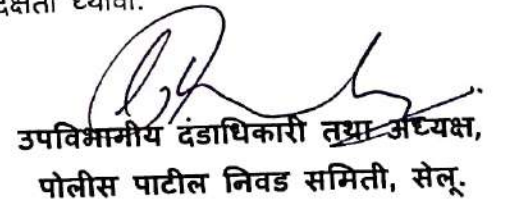 दक्षता घ्यावी.
उपविभागीय दंडाधिकारी तथा अध्यक्ष,
पोलीस पाटील निवड समिती, सेलू.